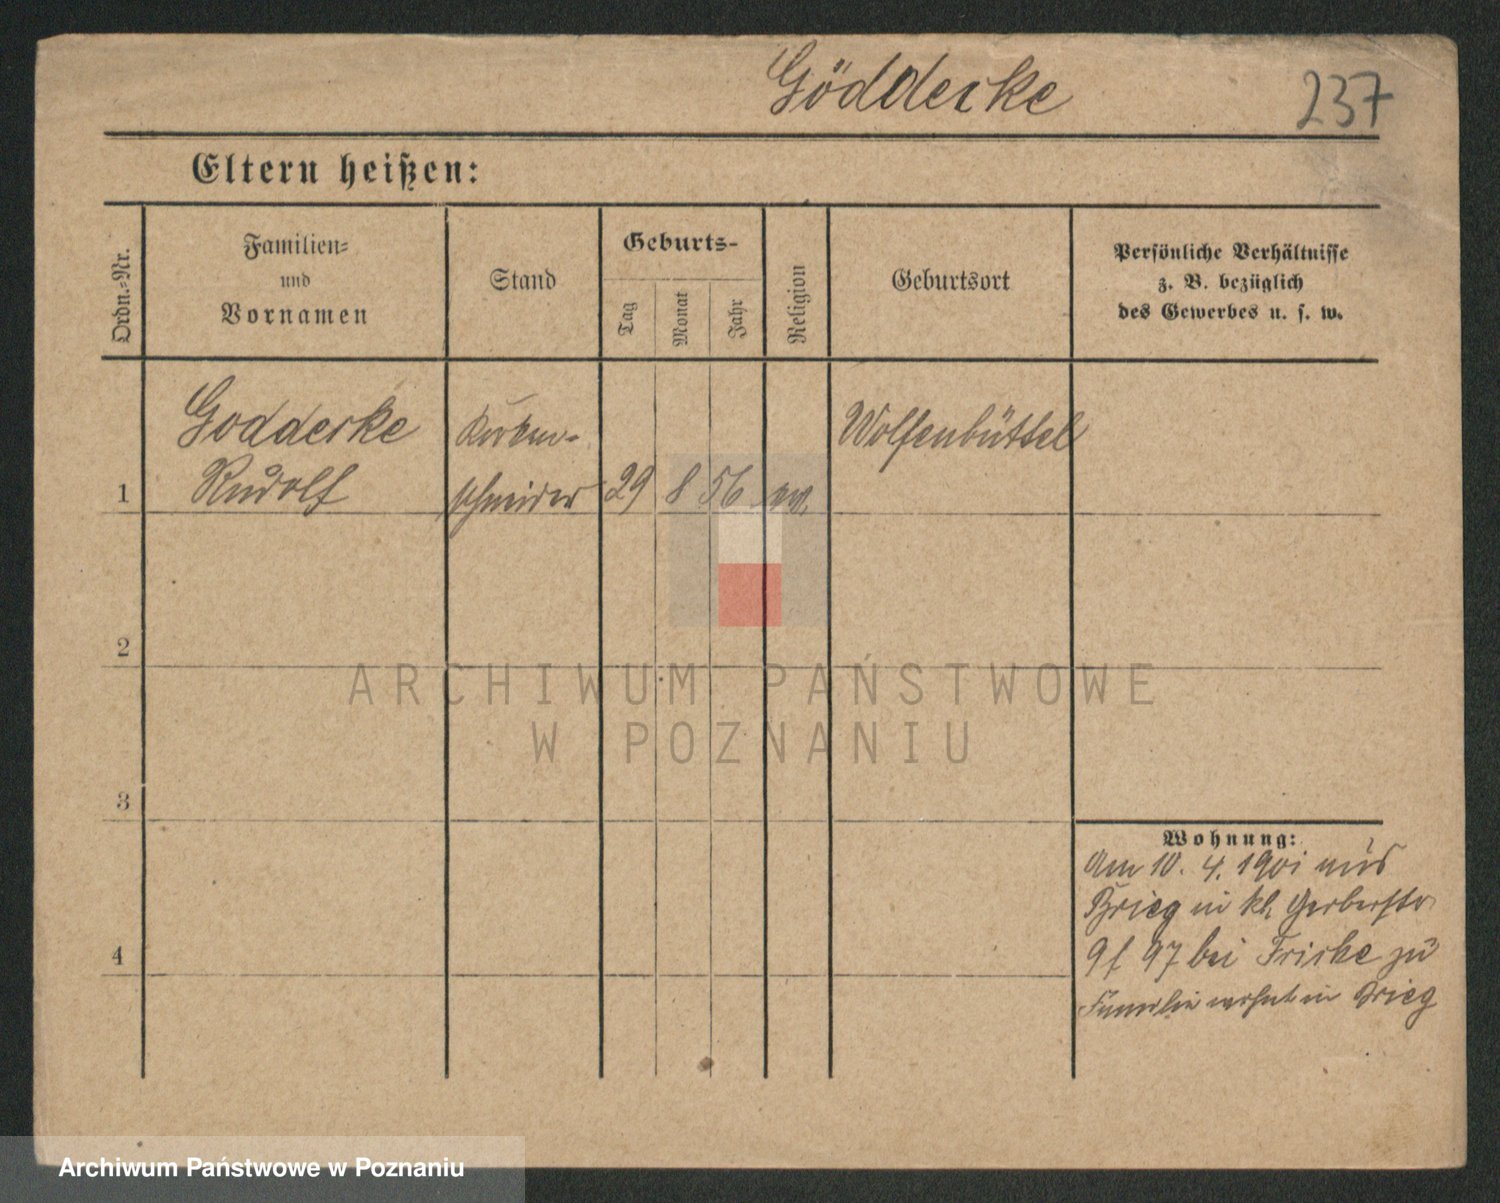 Göddecke
237
Eltern heißen:
Ordn.-Nr.
Familien-
und
Vornamen
Stand
Geburts-
Tag
Monat
Jahr
Religion
Geburtsort
Persönliche Verhältnisse
z. B. bezüglich
des Gewerbes u. s. w.
Goddecke
Rudolf
schneider
1
29
8
56
ev.
Wolfenbüttel
2
3
4
ARCHIWUM PAŃSTWOWE
W POZNANIU
Wohnung:
Am 10. 4. 1901 aus
Brieg in kl. Gerberstr.
9/ 97 bei Fricke zu
Familie wohnt in Brieg
Archiwum Państwowe w Poznaniu